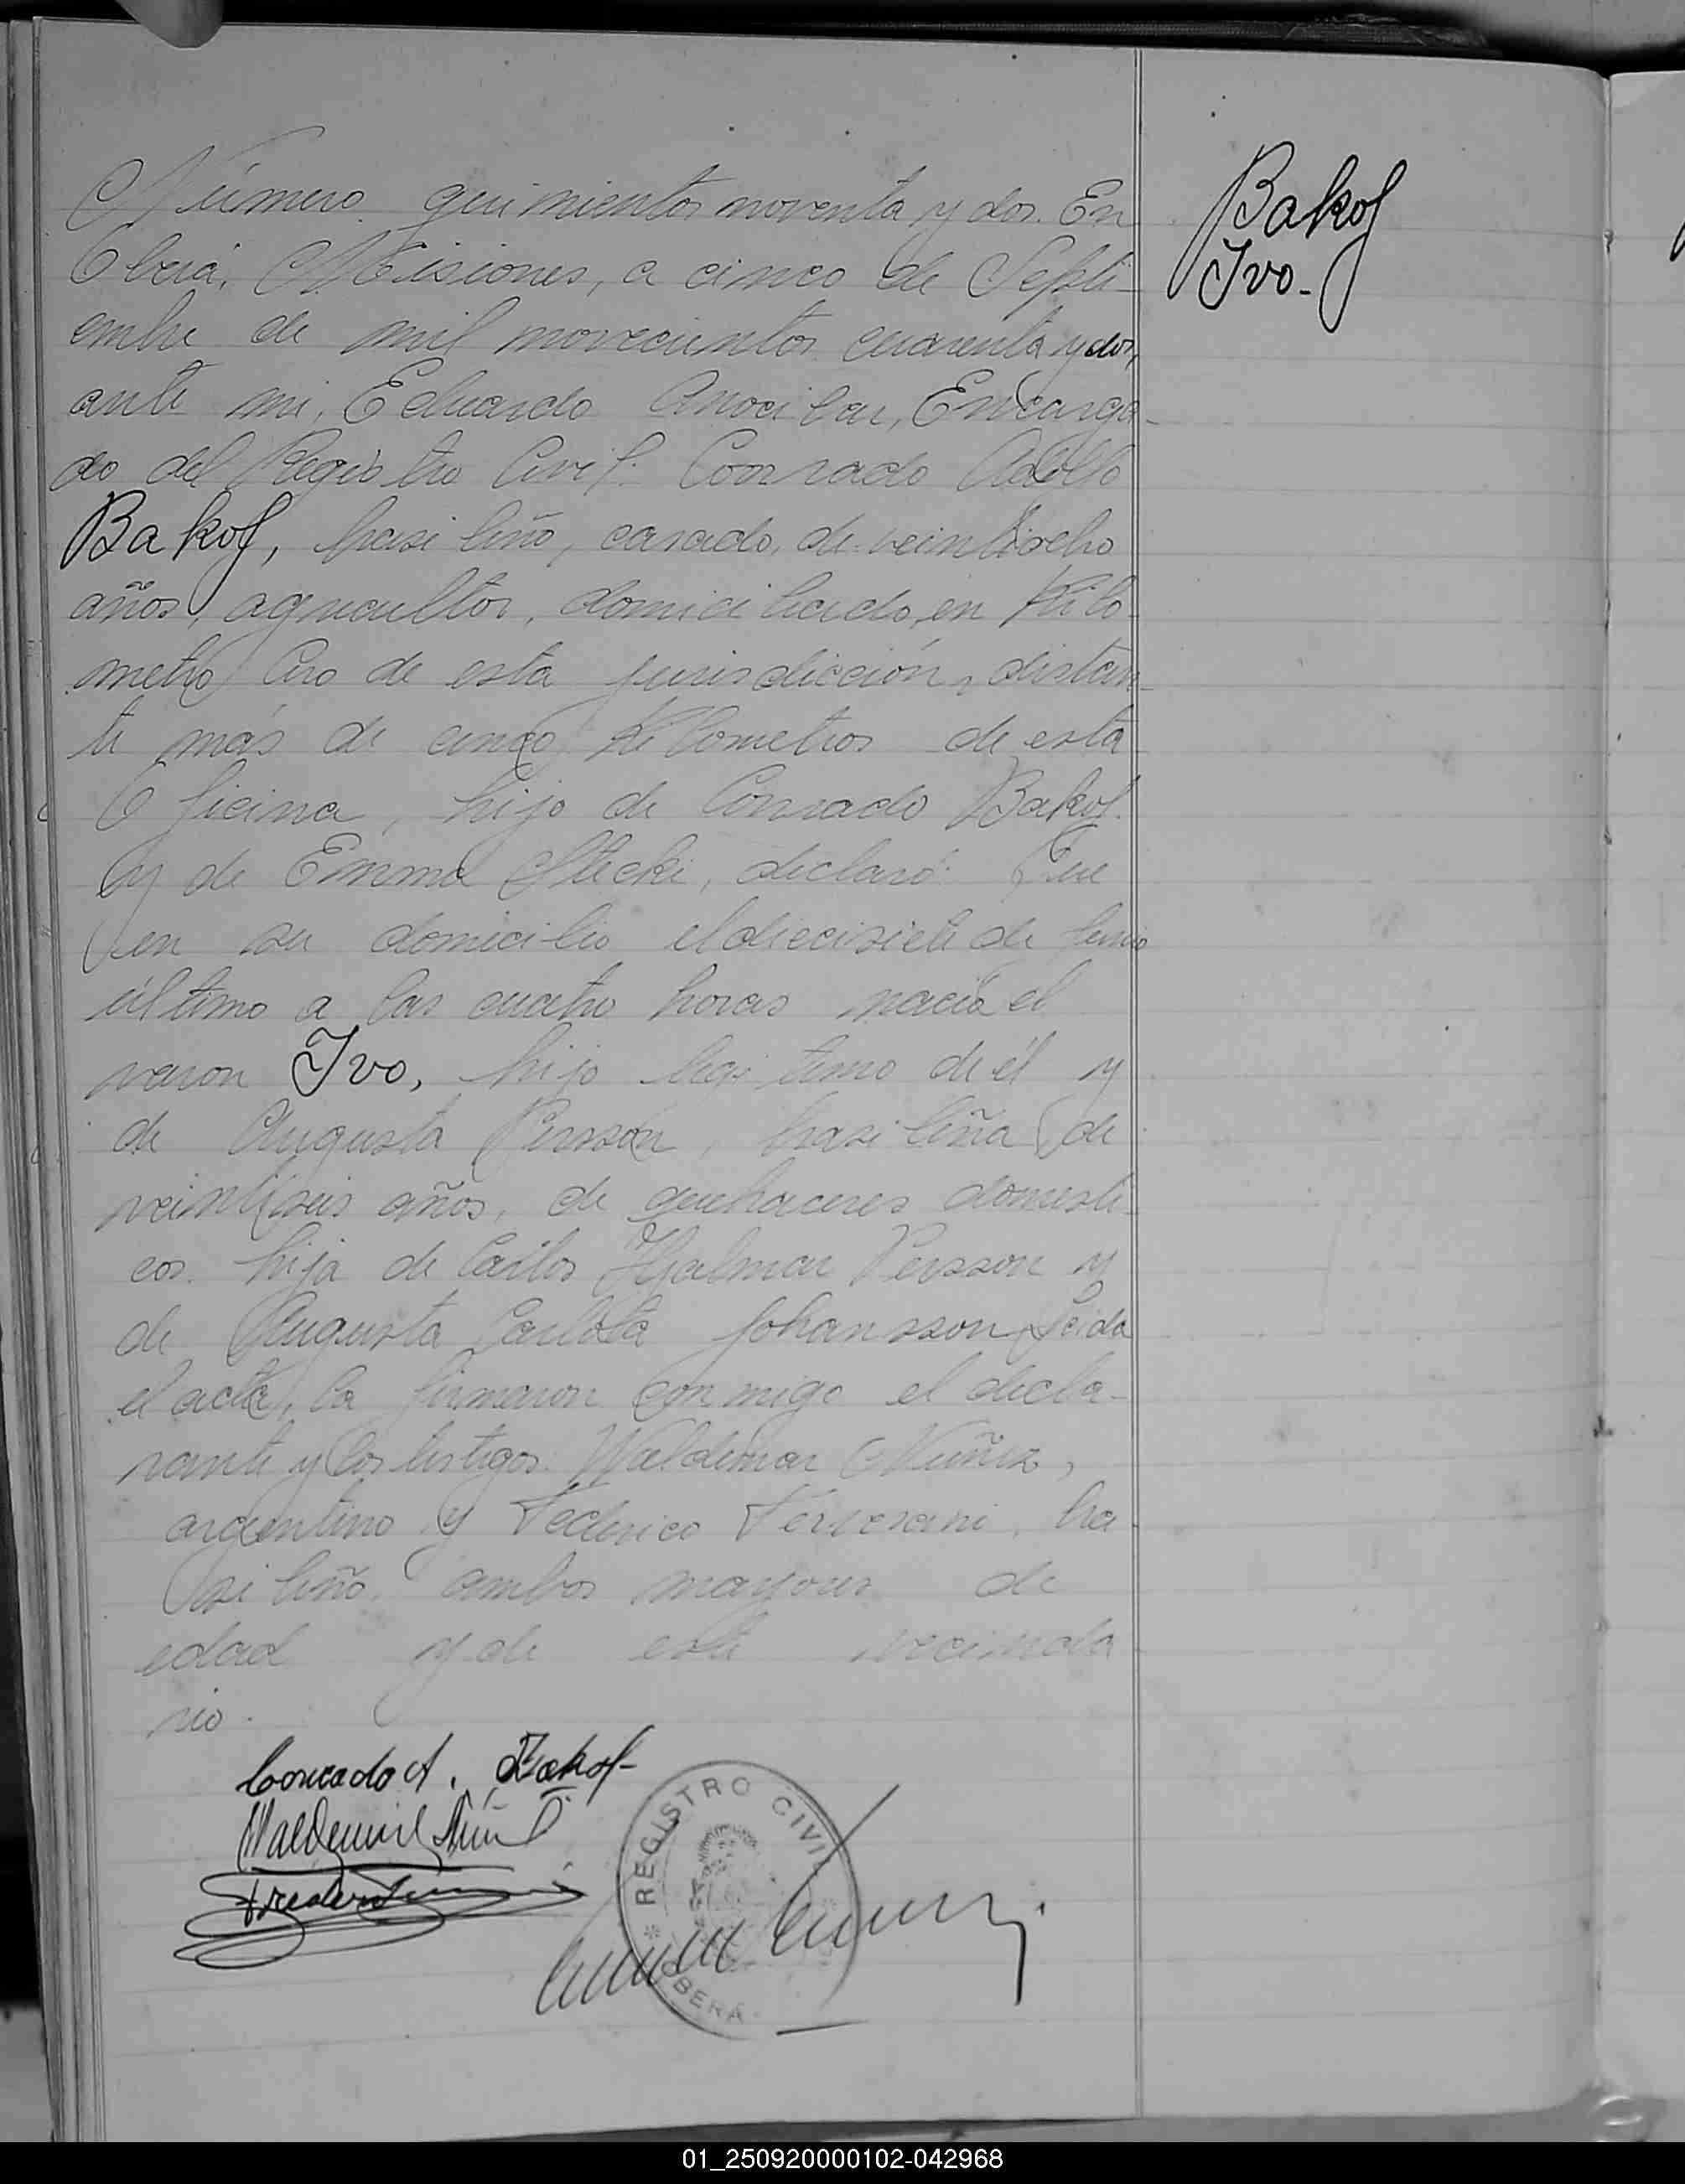 Número quinientos noventa y dos. En
Oberá, Misiones, a cinco de Septi-
embre de mil novecientos cuarenta y dos,
ante mi, Eduardo Anocibar, Encarga-
do del Registro Civil: Conrado Adolfo
Bakof, brasileño, casado, de veintiocho
años, agricultor, domiciliado en Kiló-
metro Cero de esta jurisdicción, distan-
te más de cinco Kilometros de esta
Oficina, hijo de Conrado Bakof
y de Emma Stecke, declaró: Que
en su domicilio el diecisiete de junio
último a las cuatro horas nació el
varon Ivo, hijo legitimo de él y
de Augusta Persson, brasileña, de
veintiseis años, de quehaceres domesti-
cos, hija de Carlos Hjalmar Persson y
de Augusta Carlota Johansson. Leida
el acta, la firmaron conmigo el decla-
rante y los testigos Waldemar Núñez,
argentino y Federico Ferverani, bra-
sileño, ambos mayores de
edad y de este vecinda
rio.
Bakof
Ivo.-
Conrado A. Bakof-
REGISTRO CIVIL
OBERÁ
01_250920000102-042968